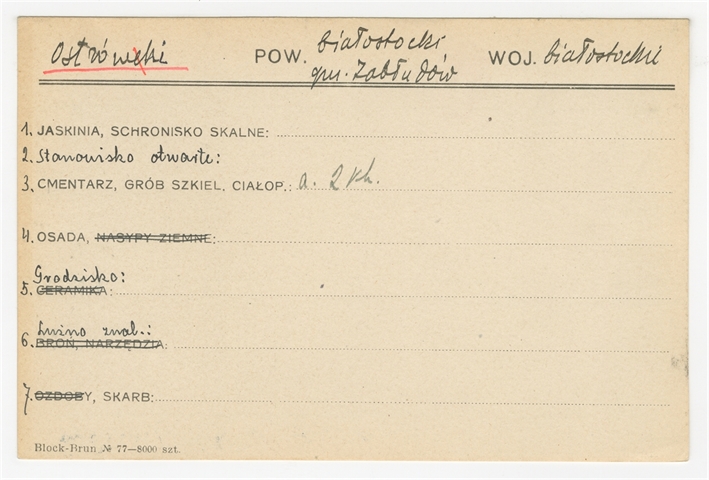 Ostrówki POW. białostocki WOJ. białostockie
gm. Zabłudów
1. JASKINIA, SCHRONISKO SKALNE:
2. Stanowisko otwarte:
3. CMENTARZ, GRÓB SZKIEL. CIAŁOP.: a. 2 kh.
4. OSADA, NASYPY ZIEMNE:
Grodzisko:
5. CERAMIKA:
Luźno znal.:
6. BROŃ, NARZĘDZIA:
7. OZDOBY, SKARB:
Block-Brun № 77—8000 szt.